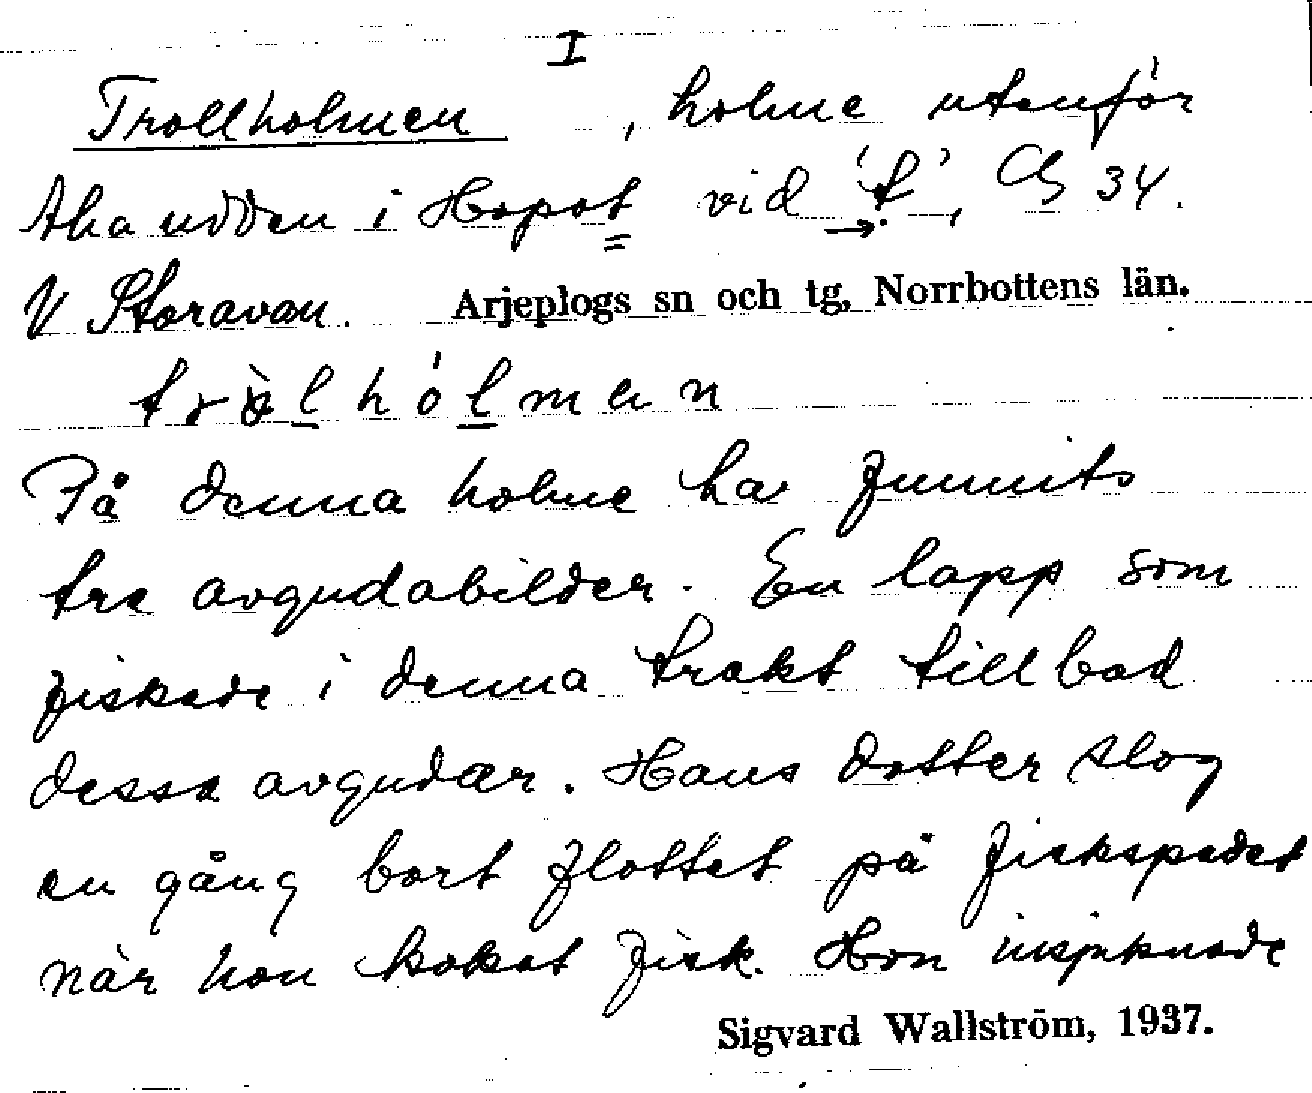 I
Trollholmen, holme utanför
Akaudden i Hopot vid 't', C5 34.
V Storavan. Arjeplogs sn och tg, Norrbottens län.
tròlhólmen
På denna holme har funnits
tre avgudabilder. En lapp som
fiskade i denna trakt tillbad
dessa avgudar. Hans dotter slog
en gång bort flottet på fiskspadet
när hon kokat fisk. Hon insjuknade
Sigvard Wallström, 1937.